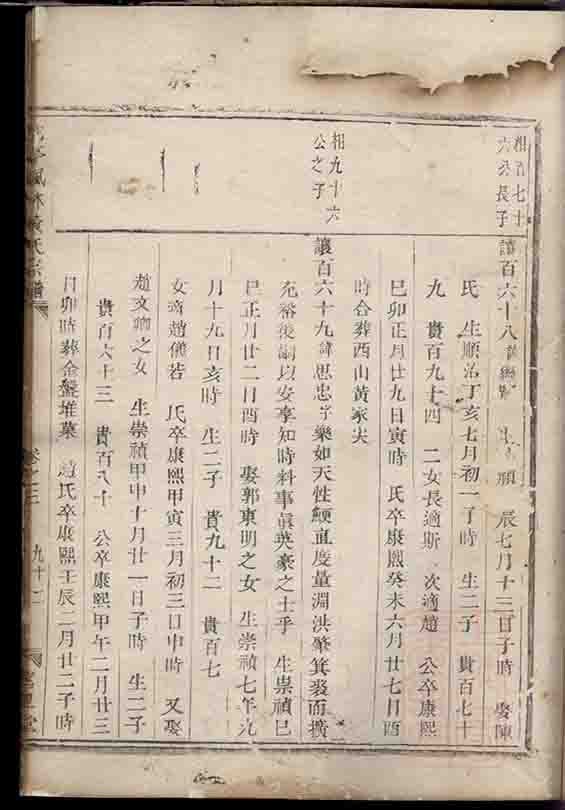 相百七十
六公長子
讓百六十八 生 禎 辰七月十三日子時 娶陳
氏 生順治丁亥七月初一子時 生二子 貴百七十
九 貴百九十四 二女長適斯 次適趙 公卒康熙
巳卯正月廿九日寅時 氏卒康熙癸未六月廿七日酉
時合葬西山黃家尖
相九十六
公之子
讓百六十九諱思忠字樂如天性鯁直度量淵洪肇箕裘而擴
充裕後嗣以安享知時料事眞英豪之士乎 生崇禎巳
巳正月廿二日酉時 娶郭東明之女 生崇禎七年九
月十九日亥時 生二子 貴九十二 貴百七
女適趙儀若 氏卒康熙甲寅三月初三日申時 又娶
趙文 之女 生崇禎甲申十月廿一日子時 生二子
貴百六十三 貴百八十 公卒康熙甲午二月廿三
日卯時葬金盤堆菓 趙氏卒康熙壬辰二月廿二子時
風林黃氏宗譜 卷之三 九十二 堂